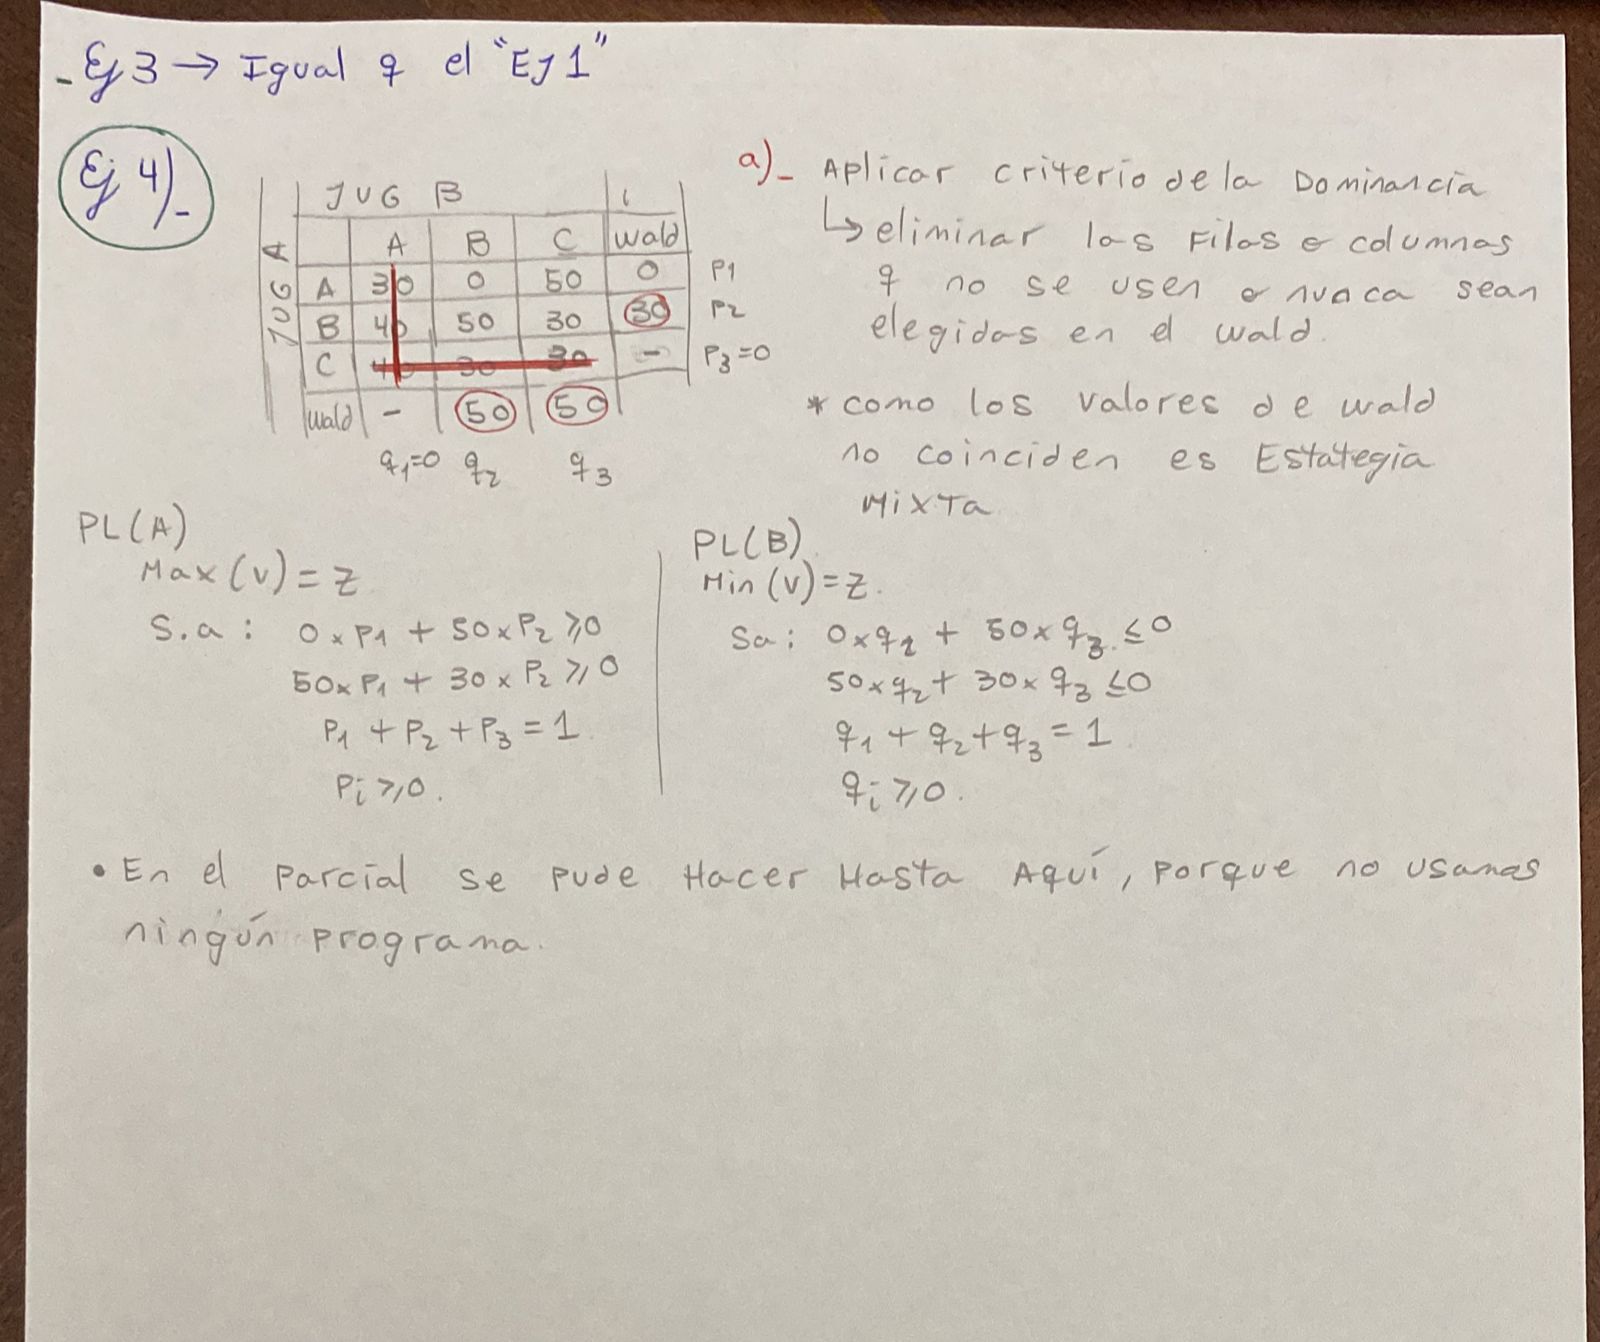 - Ej 3 → Igual q el "EJ 1"
Ej 4)-
JUG B
JUG A
A B C Wald
A 30 0 50 0 P1
B 40 50 30 30 P2
C 40 30 30 - P3=0
Wald - 50 50
q1=0 q2 q3
a)- Aplicar criterio de la Dominancia
↳ eliminar las Filas o columnas
q no se usen o nunca sean
elegidas en el wald.
* como los valores de wald
no coinciden es Estategia
MixTa
PL(A)
Max(v) = Z
S.a: 0 x P1 + 50 x P2 ≥ 0
50 x P1 + 30 x P2 ≥ 0
P1 + P2 + P3 = 1
Pi ≥ 0.
PL(B).
Min(v) = Z.
Sa: 0 x q2 + 50 x q3 ≤ 0
50 x q2 + 30 x q3 ≤ 0
q1 + q2 + q3 = 1
qi ≥ 0.
• En el parcial se pude Hacer Hasta Aquí, porque no usamos
ningún programa.